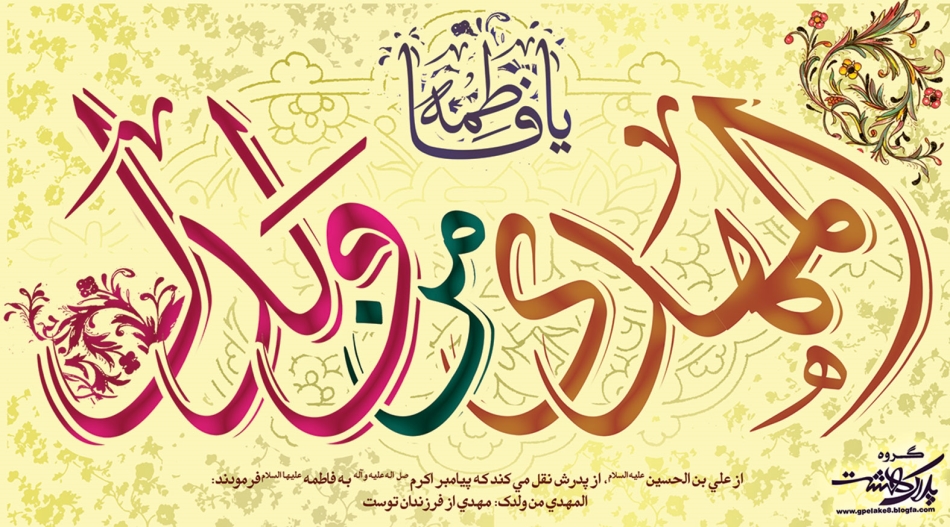 یا فاطمه
المهدی من ولدک
از علي بن الحسين علیه السلام، از پدرش نقل مي کند که پيامبر اکرم صل اله علیه و آله به فاطمه علیها السلام فرمودند:
المهدي من ولدک: مهدي از فرزندان توست
گروه
پلاک هشت
www.gpelake8.blogfa.com